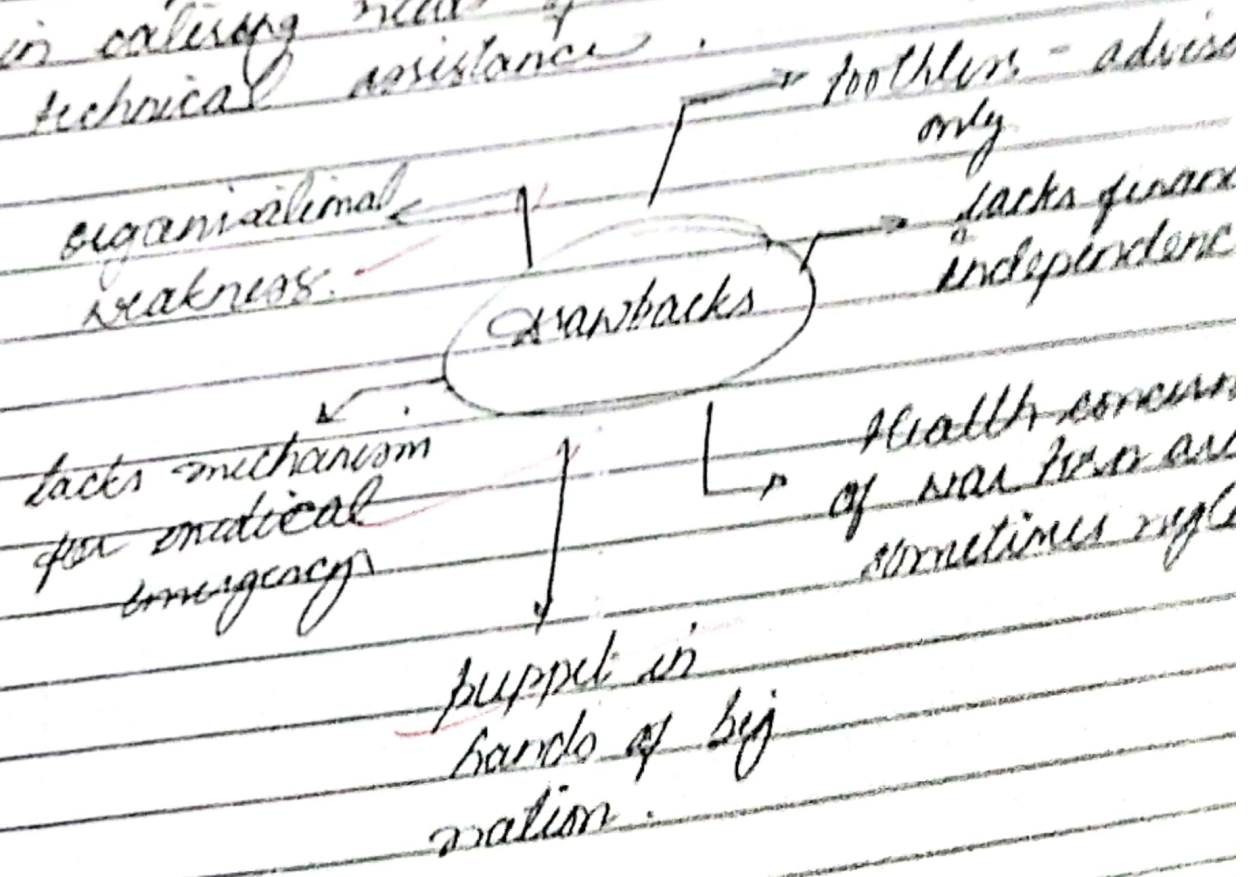 in catering need of
technical assistance.
toothless - adviso
only
organisational
weakness.
lacks finan
independenc
Drawbacks
lacks mechanism
for medical
emergency
Health concern
of war torn are
sometimes negle
puppet in
hands of big
nation.